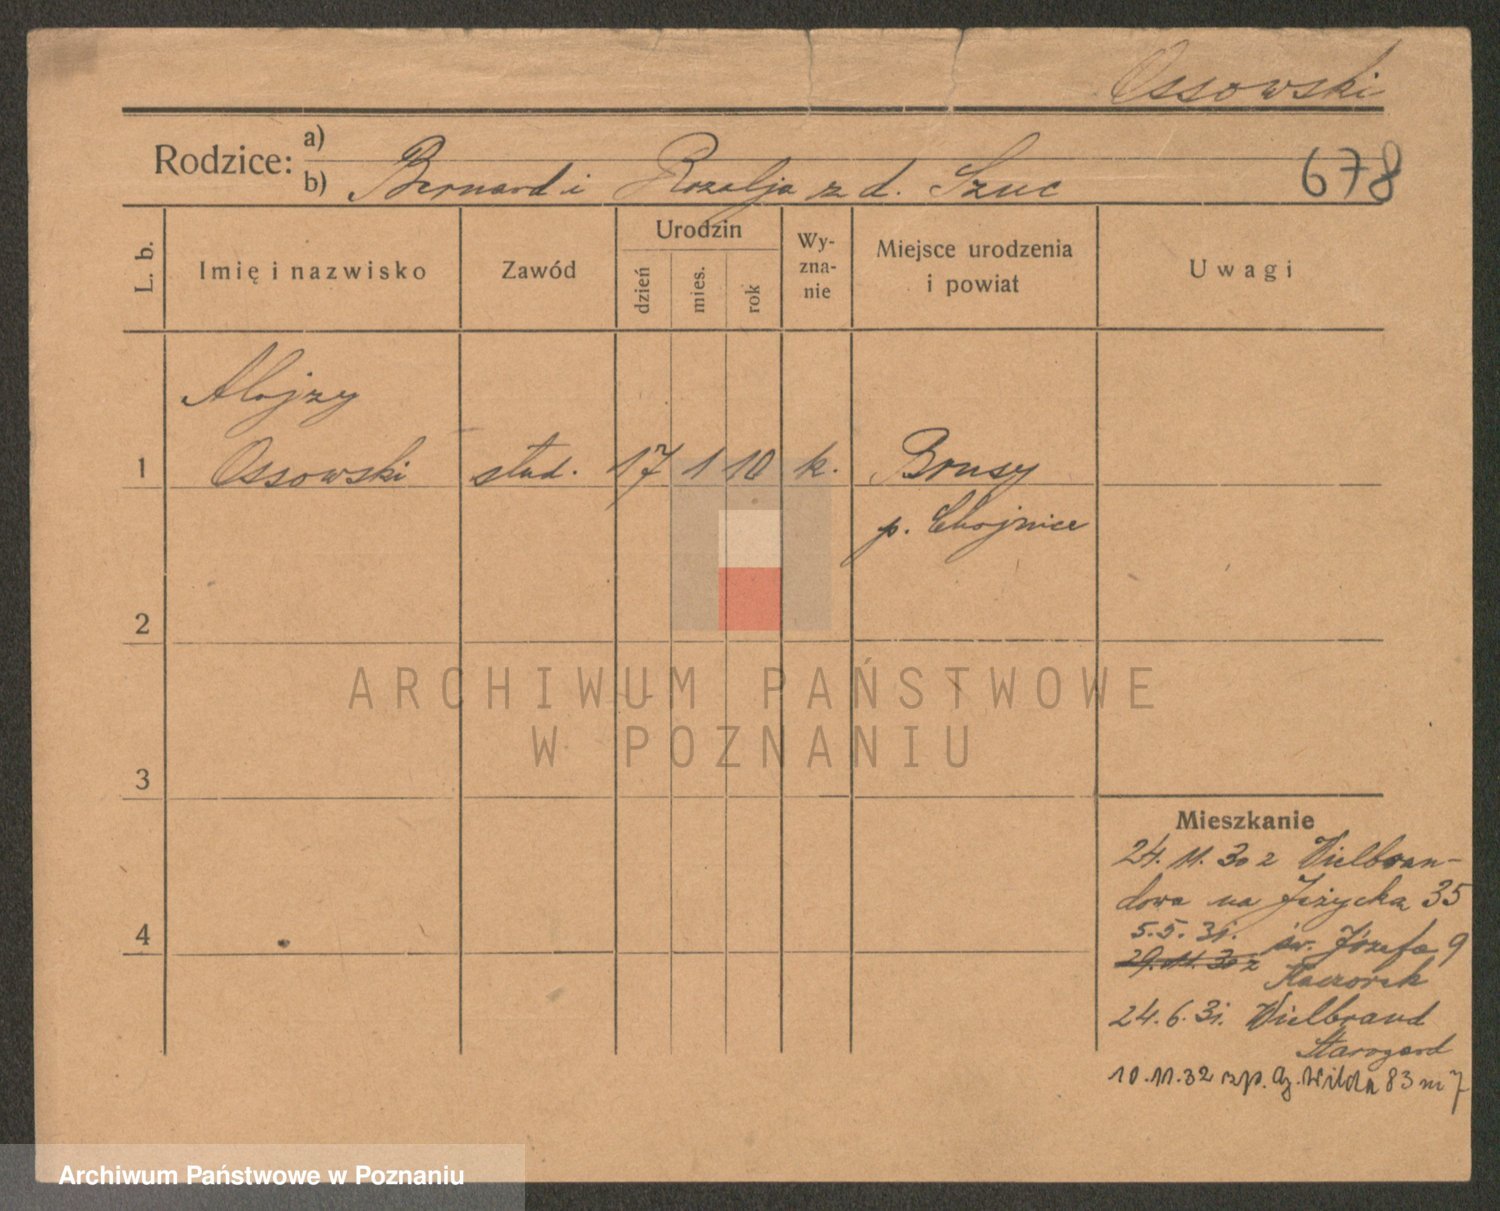 Ossowski
Rodzice: a)
b) Bernard i Rozalja z d. Szuc
678
L. b.
Imię i nazwisko
Zawód
Urodzin
dzień
mies.
rok
Wy-
zna-
nie
Miejsce urodzenia
i powiat
Uwagi
Alojzy
1 Ossowski stud. 17 1 10 k. Brusy
p. Chojnice
2
ARCHIWUM PAŃSTWOWE
W POZNANIU
3
Mieszkanie
24. 11. 30 z Wielbran-
dowa na Jeżycka 35
4
5. 5. 31. św. Józefa 9
29. 11. 30 z Kaczorek
24. 6. 31. Wielbrand
Starogard
10. 11. 32 zp. G. Wilda 83 m 7
Archiwum Państwowe w Poznaniu